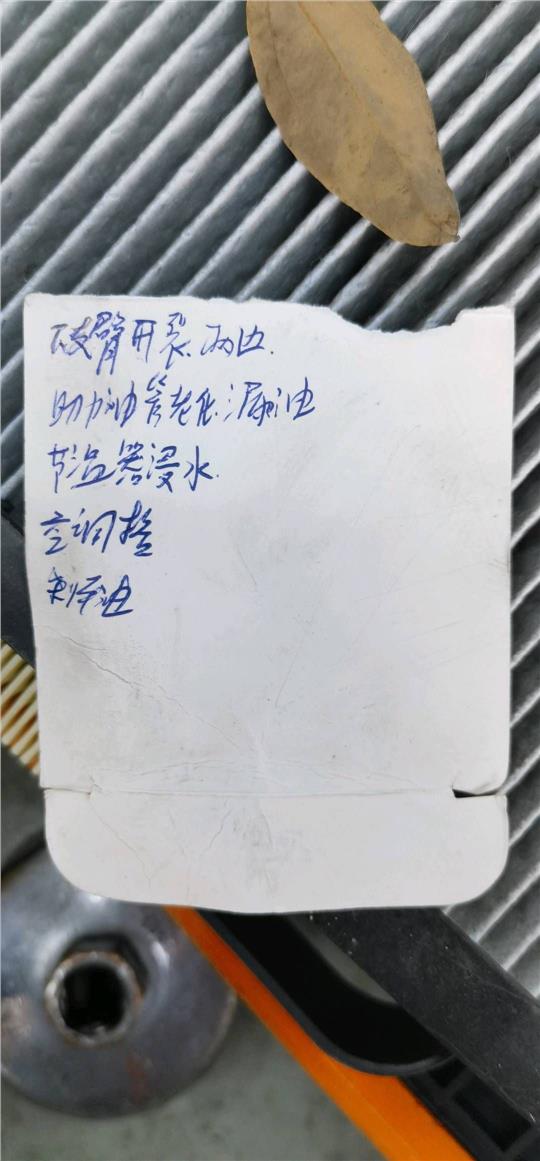 下支臂开裂.两边.
助力油管老化漏油
节温器浸水.
空调格
刹车油